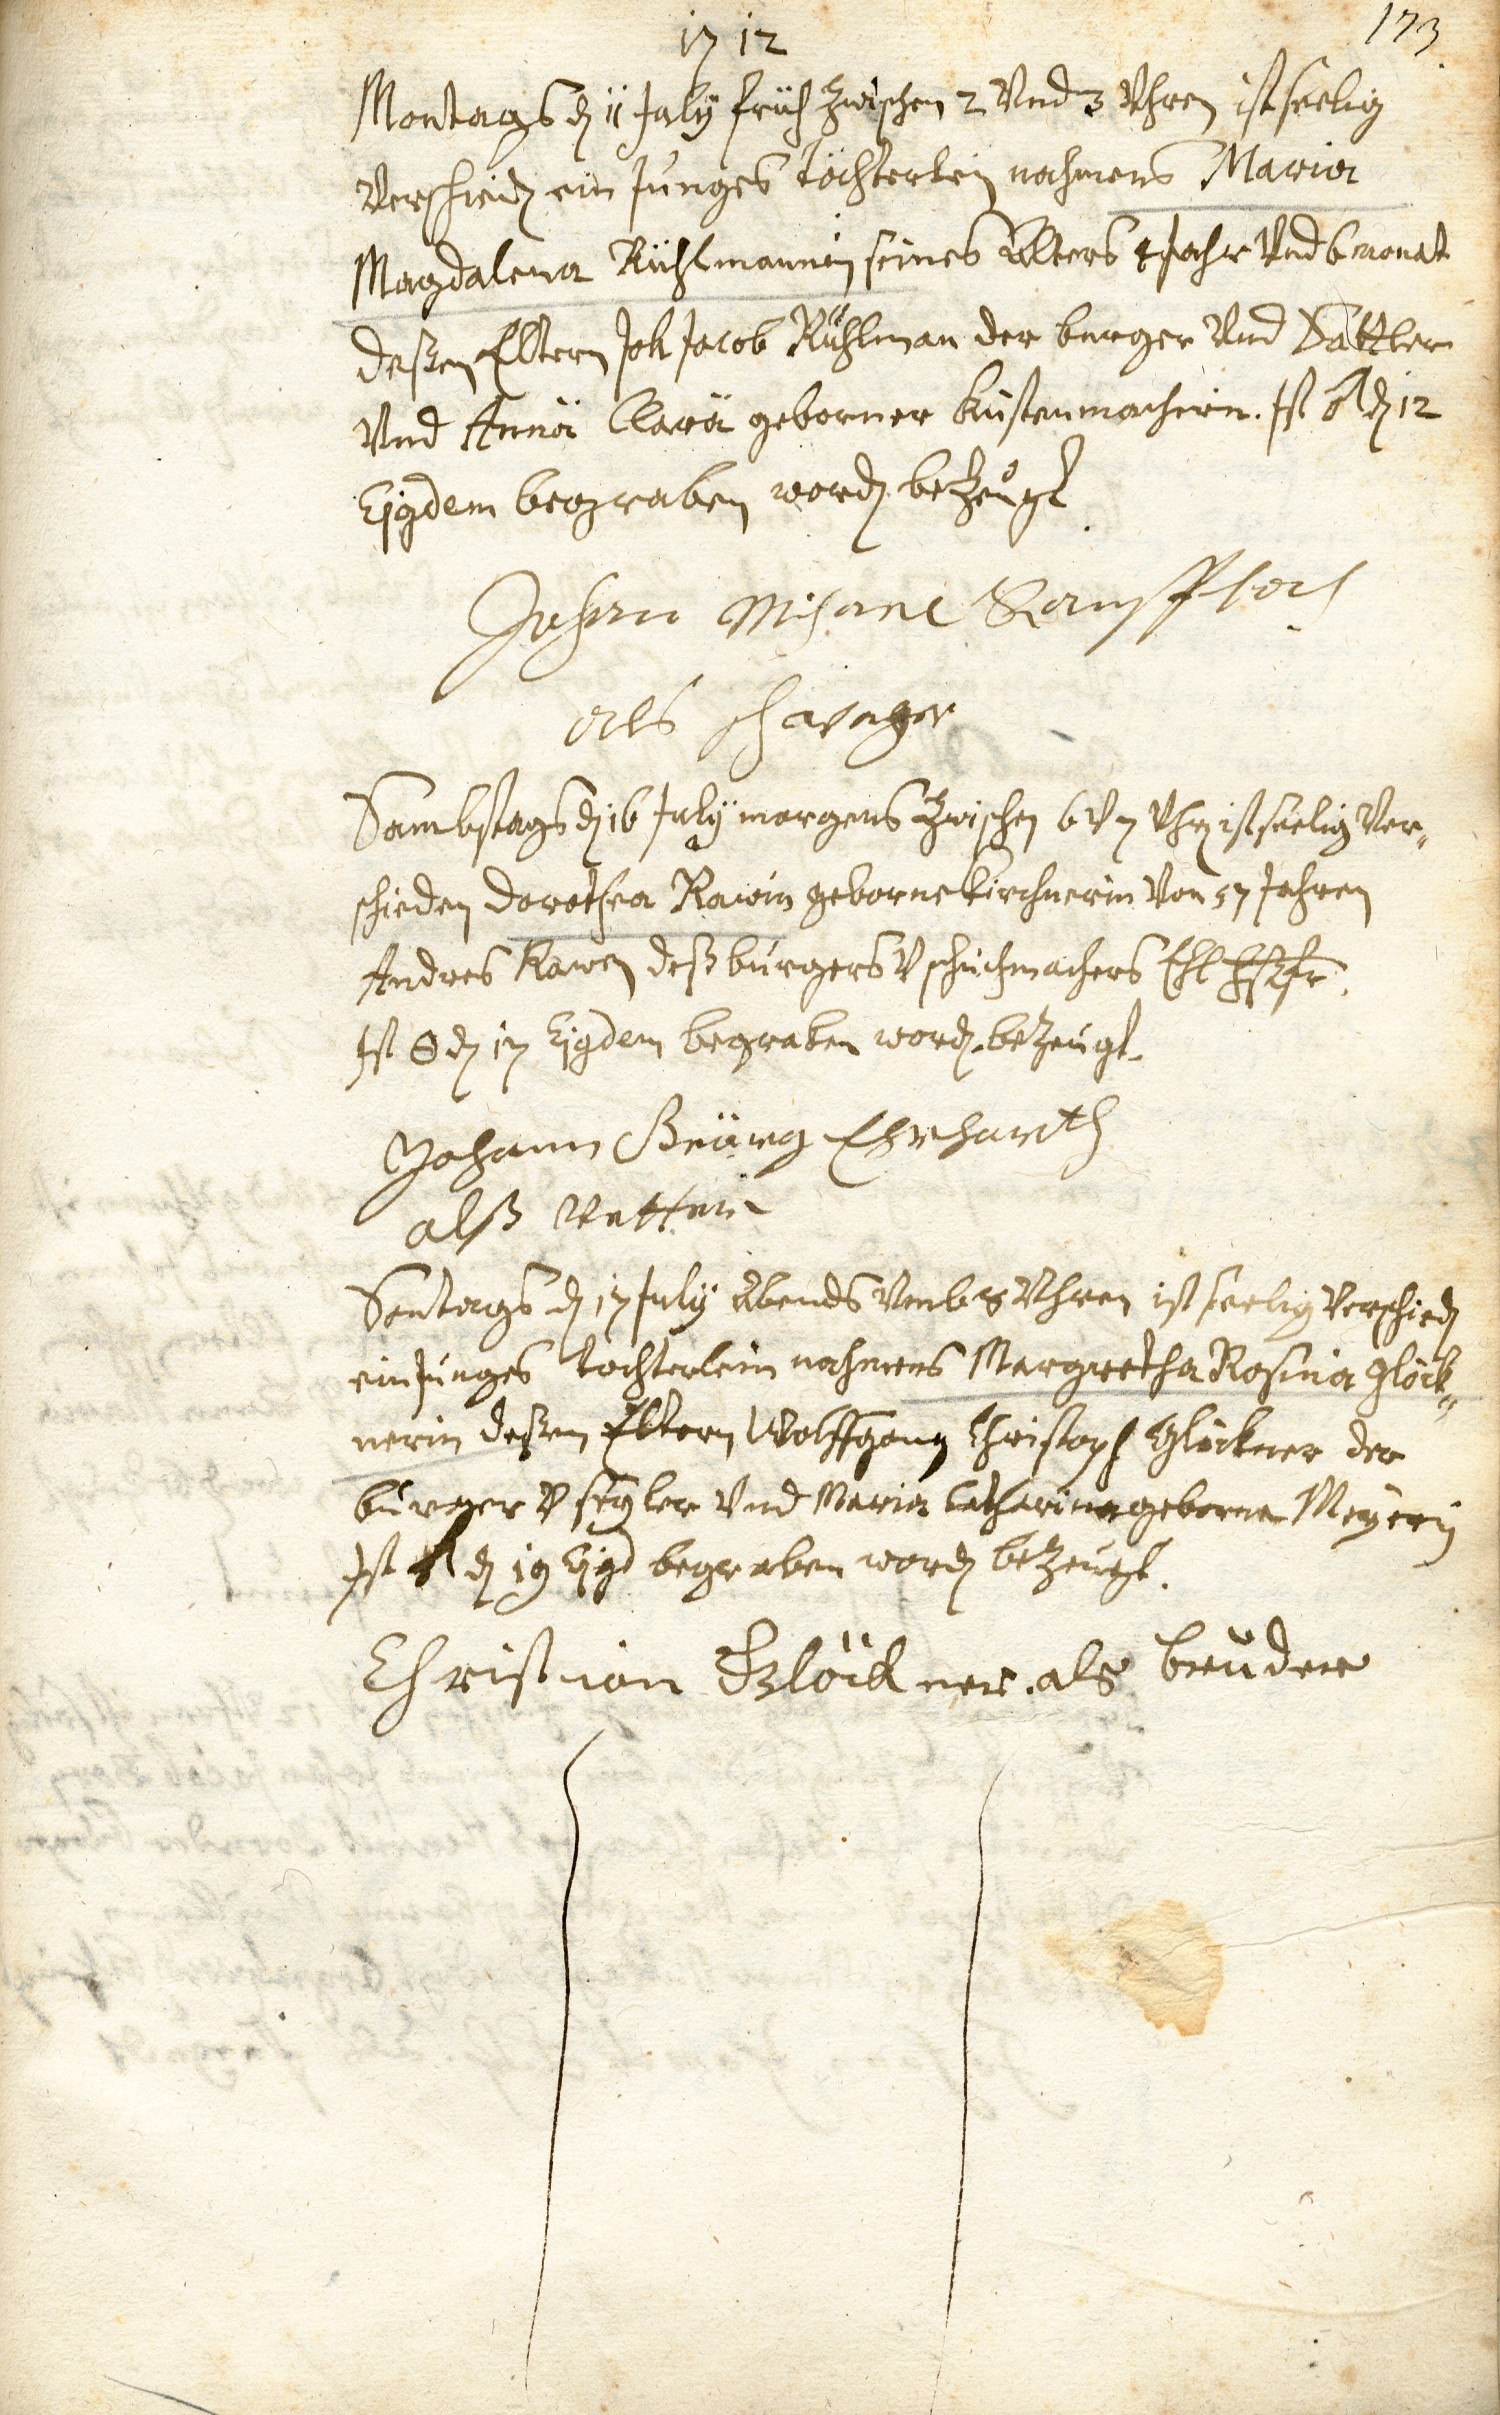 1712
173
Montags dℓ 11 July früh zwischen 2 Vnd 3 Uhren ist seelig
Verschiedℓ ein Junges töchterlein nahmens Maria
Magdalena Rühlmannin seines Alters 4 Jahr Vnd 6 monat
deßen Eltern Joh Jacob Rühlman der burger Vnd Sattler
Vnd Annä Clarä geborner Küstenmacherin. Ist ♂ dℓ 12
Ejgdem begraben wordℓ bezeugt
Johann Michael
als schwager
Sambstags dℓ 16 July morgens zwischen 6 V 7 Uhrℓ ist seelig Ver-
schieden Dorothea Rawin geborne Kirchnerin Von 57 Jahren
Andres Rawen deß burgers V schuchmachers Ehl
Ist ☉ dℓ 17 Ejgdem begraben wordℓ bezeugt
Johann Geürg Ehrhardth
alß Vetter
Sontags dℓ 17 July Abends Vmb 8 Uhren ist seelig Verschiedℓ
ein Junges tochterlein nahmens Margretha Rosina Glöck-
nerin deßen Eltern Wolffgang Christoph Glöckner der
burger V seyler Vnd Maria Catharina geborne Meyerin
Ist dℓ 19 Ejgd begraben wordℓ bezeugt.
Christian Glöckner als bruder